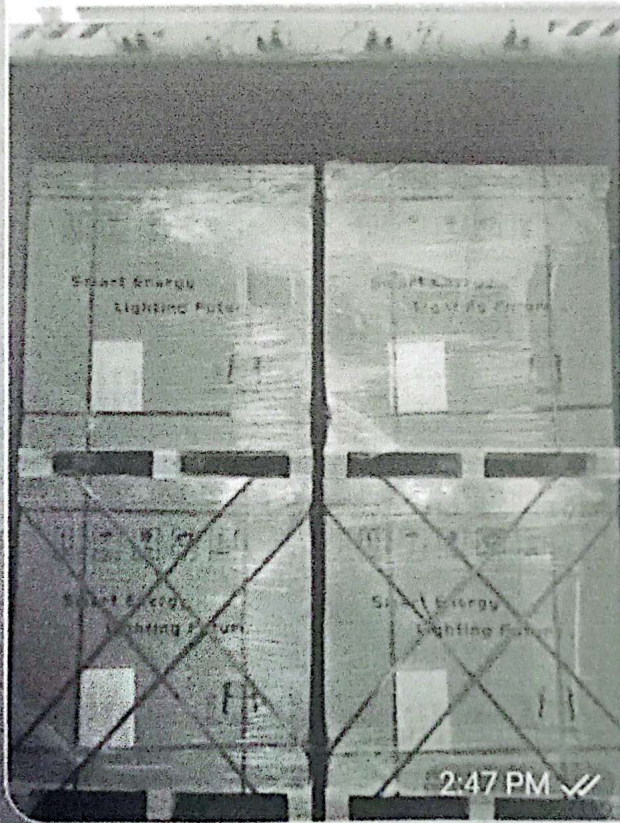 Smart Energy
Lighting Futur
Smart Energy
Lighting Future
Smart Energy
Lighting Future
Smart Energy
Lighting Future
2:47 PM